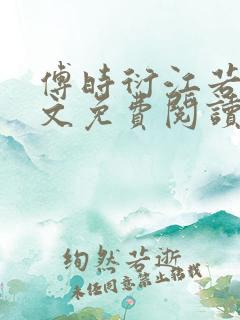 傅時衍江若
文免費閱讀
絢然若逝
未经同意禁止转载